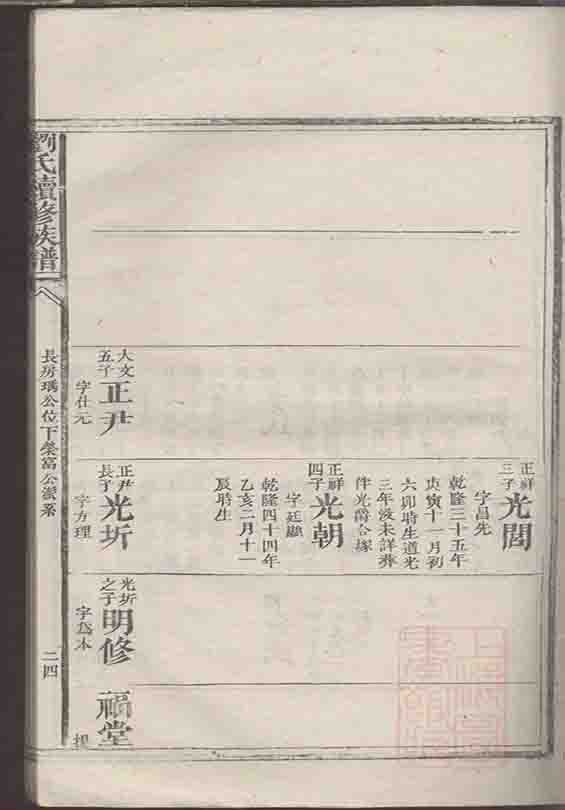 正祥
三子
光閭
字昌先
乾隆三十五年
庚寅十一月初
六卯時生道光
三年歿未詳葬
伴光爵合塚
正祥
四子
光朝
字廷顯
乾隆四十四年
乙亥二月十一
辰時生
大文
五子
正尹
字仕元
正尹
長子
光圻
字方理
光圻
之子
明修
字為本
福堂
劉氏續修族譜
長房瑀公位下榮富公派系
二四